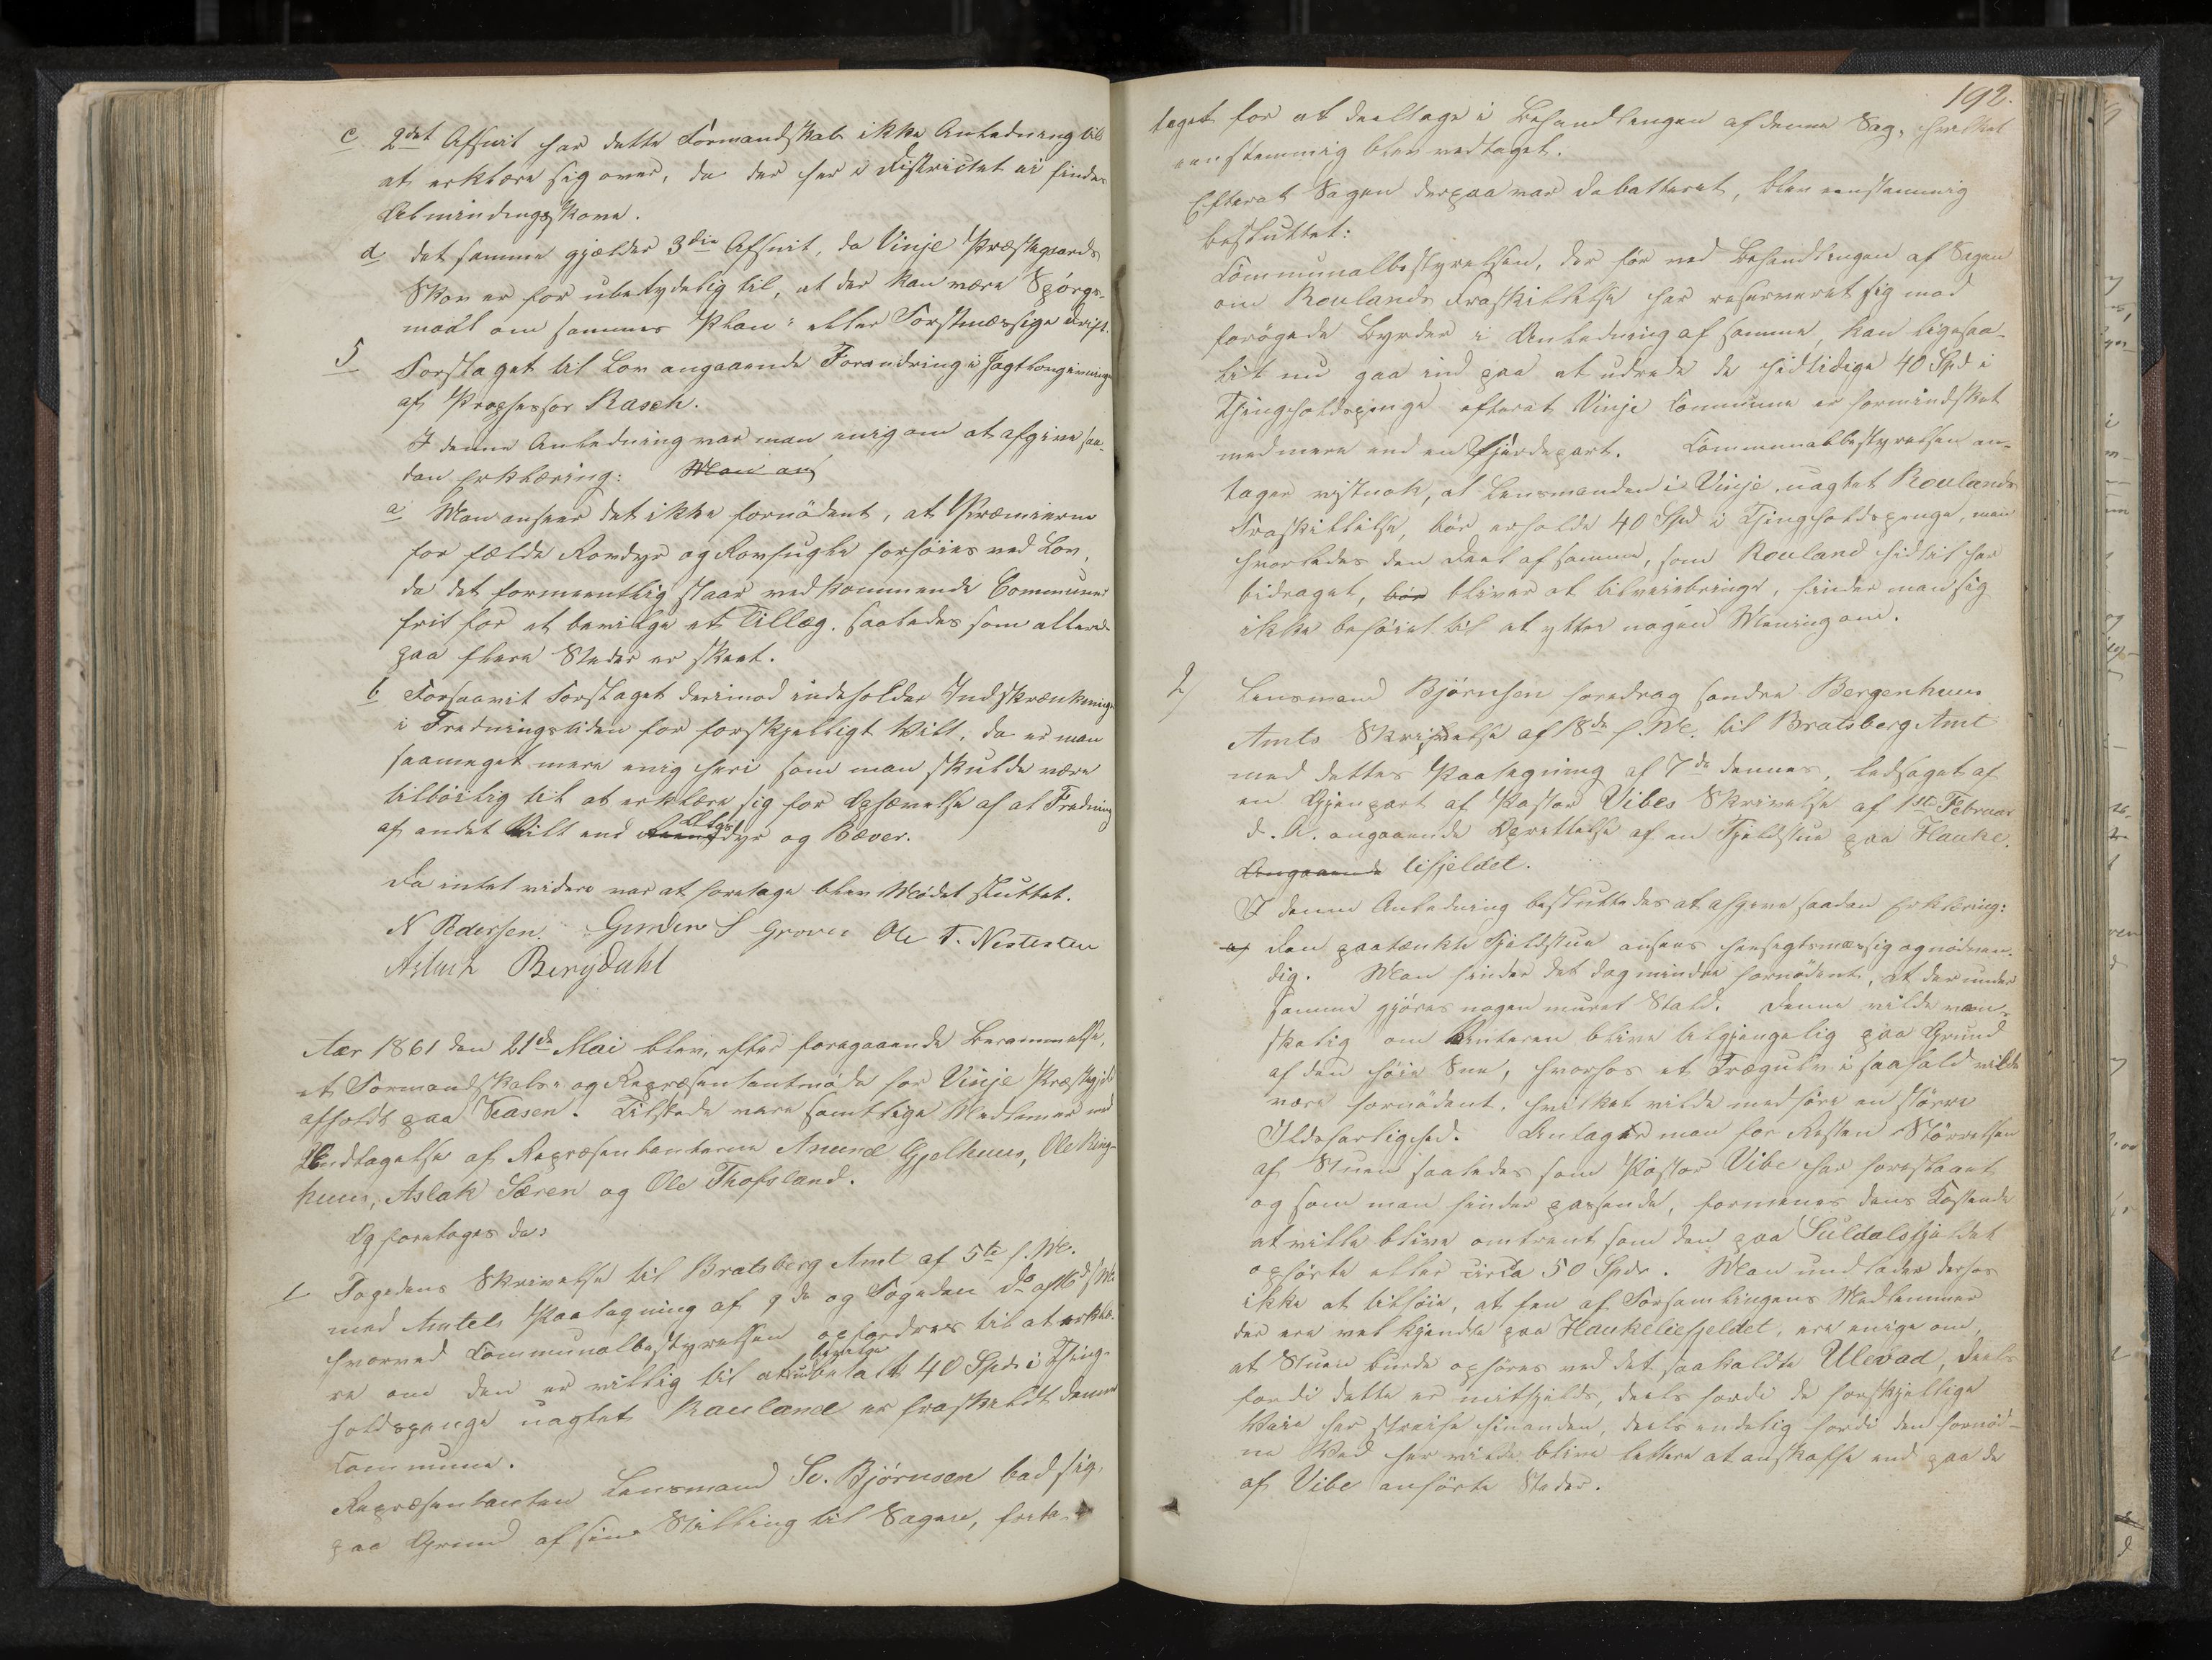 c 2det Afsnit har dette Formandskab ikke Anledning til
at erklære sig over, da der her i Districtet ei findes
Almindingsskove.
d det samme gjælder 3die Afsnit, da Vinje Præstegaards
Skov er for ubetydelig til, at der kan være Spörgs-
maal om sammes Plan- eller Forstmæssige Drift.
5 Forslaget til Lov angaaende Forandring i Jagtlovgivningen
af Professor Rasch.
I denne Anledning var man enig om at afgive saa-
dan Erklæring: Man an
a Man anseer det ikke fornödent, at Præmierne
for fælde Rovdyr og Rovfugle forhöies ved Lov,
da det formeentlig staar vedkommende Communer
frit for at bevilge et Tillæg, saaledes som allerede
paa flere Steder er skeet.
b Forsaavit Forslaget derimod indeholder Indskrænkning
i Fredningstiden for forskjelligt Vildt, da er man
saameget mere enig heri som man skulde være
tilböilig til at erklære sig for Ophævelse af al Fredning
af andet Vildt end Elgsdyr og Bæver.
Da intet videre var at foretage blev Mödet sluttet.
N Pedersen. Gunder S Grover Ole T. Nesteslen
Aslach Bergdahl
Aar 1861 den 21de Mai blev, efter foregaaende Berammelse,
et Formandskabs- og Repræsentantmöde for Vinje Præstegjeld
afholdt paa Vaasen. Tilstede vare samtlige Medlemer med
Undtagelse af Repræsentanterne Anund Gjelhuus, Ole Ring-
huus, Aslak Særen og Ole Thofsland.
Og foretoges da:
1 Fogedens Skrivelse til Bratsberg Amt af 5te f. M.
med Amtets Paategning af 9de og Fogden do af 16de f M.
hvorved Communalbestyrelsen opfordres til at erklæ-
re om den er villig til at bevilge udbetalt 40 Spd i Thing-
holdspenge uagtet Rauland er fraskildt denne
Commune.
Repræsentanten Lensmand Sv. Björnsen bad sig,
paa Grund af sin Stilling til Sagen, frita-
192.
taget for at deeltage i Behandlingen af denne Sag, hvilket
eenstemmig blev vedtaget.
Efterat Sagen derpaa var debatteret, blev eenstemmig
besluttet:
Communalbestyrelsen, der för ved Behandlingen af Sagen
om Roulands Fraskillelse har reserveret sig mod
forögede Byrder i Anledning af samme, kan ligesaa-
lit nu gaa ind paa at udrede de hidtidige 40 Spd i
Thingholdspenge efterat Vinje Commune er formindsket
med mere end en Fjerdepart. Communalbestyrelsen an-
tager vistnok, at Lensmanden i Vinje, uagtet Roulands
Fraskillelse, bör erholde 40 Spd i Thingholdspenge, men
hvorledes den Deel af samme, som Rouland hidtil har
bidraget, bör bliver at tilveiebringe, finder man sig
ikke beföiet til at yttre nogen Mening om.
2) Lensmand Björnsen foredrog söndre Bergenhuus
Amts Skrivelse af 18de f. M. til Bratsberg Amt
med dettes Paategning af 7de dennes, ledsaget af
en Gjenpart af Pastor Vibes Skrivelse af 1ste Februar
d. A. angaaende Oprettelse af en Fjeldstue paa Hauke-
Angaaende liefjeldet.
I denne Anledning besluttedes at afgive saadan Erklæring:
a) Den paatænkte Fjeldstue ansees hensigtsmæssig og nödven-
dig. Man finder det dog mindre fornödent, at der under
samme gjöres nogen muret Stald. Denne vilde van-
skelig om Vinteren blive tilgjengelig paa Grund
af den höie Snee, hvorhos et Trægulv i saafald vilde
være fornödent, hvilket vilde medföre en större
Ildsfarlighed. Antager man for Resten Störrelsen
af Stuen saaledes som Pastor Vibe har foreslaaet
og som man finder passende, formenes dens Kostende
at ville blive omtrent som den paa Suldalsfjeldet
opförte eller circa 50 Spdr. Man undlader derhos
ikke at tilföie, at fem af Forsamlingens Medlemmer
der ere vel kjendte paa Haukeliefjeldet, ere enige om,
at Stuen burde opföres ved det saakaldte Ulevad, deels
fordi dette er mitfjelds, deels fordi de forskjellige
Veie her streife hinanden, deels endelig fordi den fornöd-
ne Ved her vilde blive lettere at anskaffe end paa de
af Vibe anförte Steder.